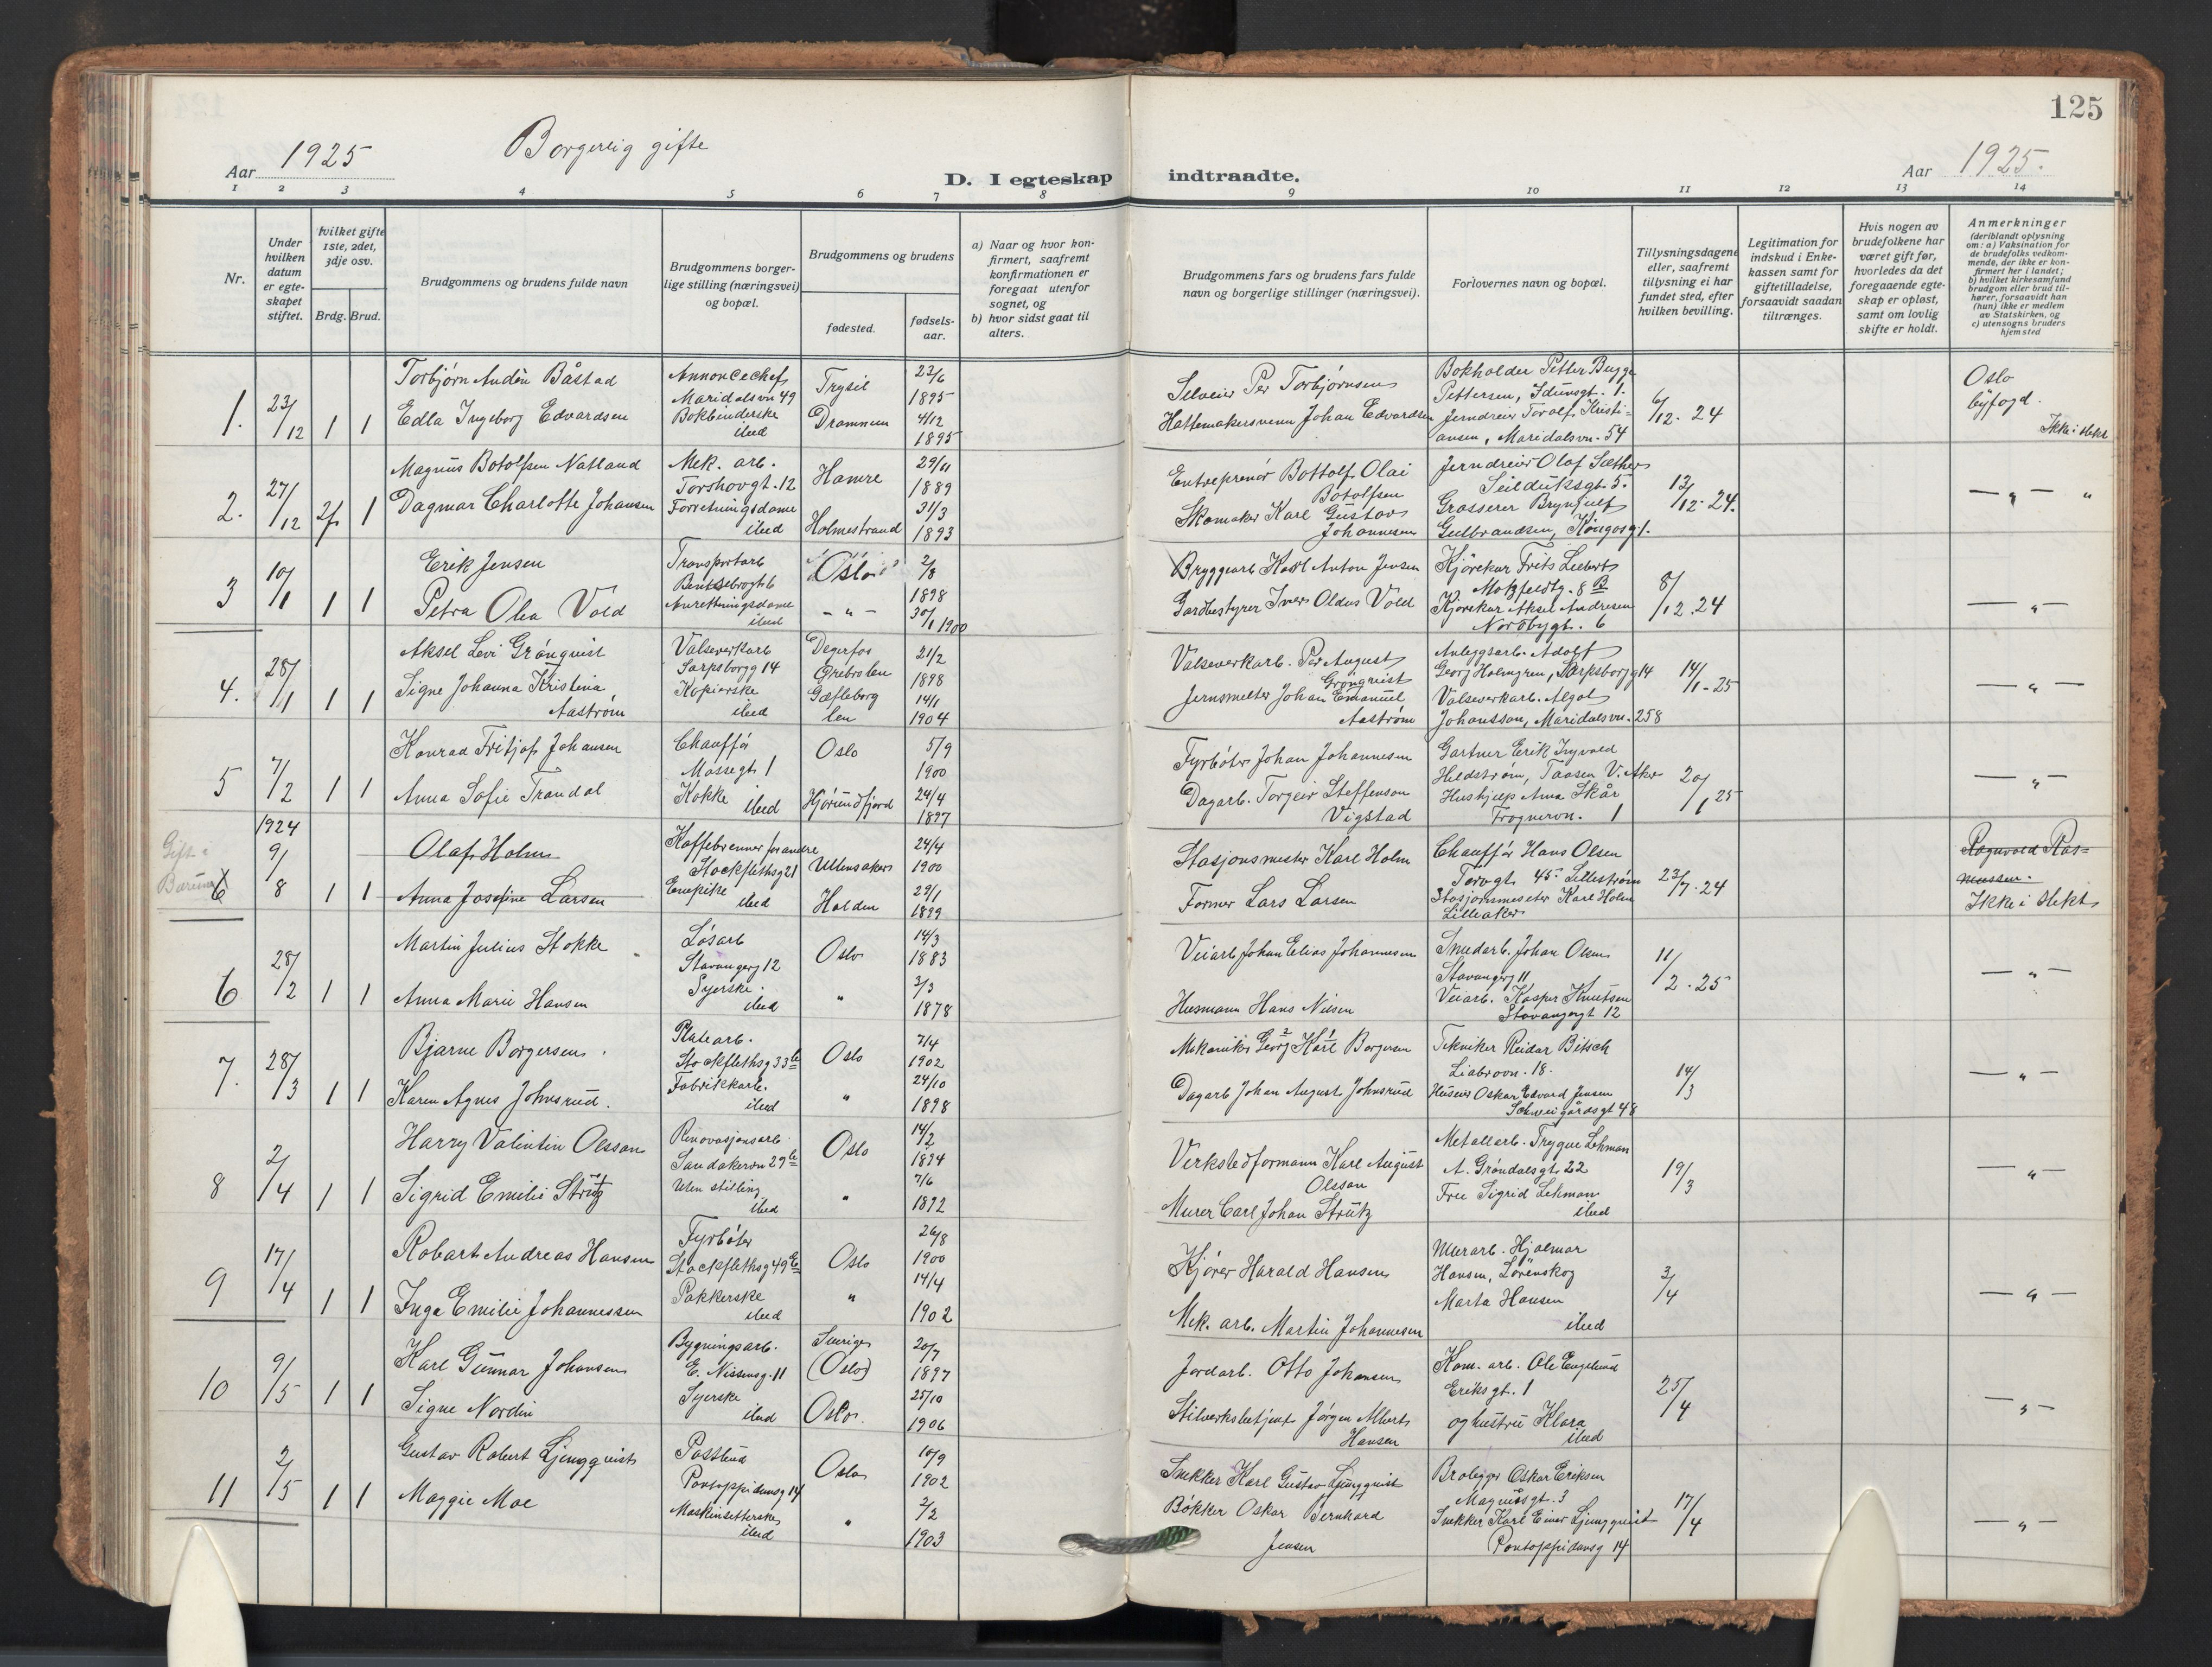 125
Aar 1925
Borgerlig gifte
D. I egteskap indtraadte.
Aar 1925.
1 2 3 4 5 6 7 8 9 10 11 12 13 14
Nr.
Under hvilken datum er egteskapet stiftet.
Hvilket gifte 1ste, 2det, 3dje osv.
Brdg. Brud.
Brudgommens og brudens fulde navn
Brudgommens borgerlige stilling (næringsvei) og bopæl.
Brudgommens og brudens
fødested.
fødselsaar.
a) Naar og hvor konfirmert, saafremt konfirmationen er foregaat utenfor sognet, og
b) hvor sidst gaat til alters.
Brudgommens fars og brudens fars fulde navn og borgerlige stillinger (næringsvei).
Forlovernes navn og bopæl.
Tillysningsdagene eller, saafremt tillysning ei har fundet sted, efter hvilken bevilling.
Legitimation for indskud i Enkekassen samt for giftetilladelse, forsaavidt saadan tiltrænges.
Hvis nogen av brudefolkene har været gift før, hvorledes da det foregaaende egteskap er opløst, samt om lovlig skifte er holdt.
Anmerkninger
(deriblandt oplysning om: a) Vaksination for de brudefolks vedkommende, der ikke er konfirmert her i landet;
b) hvilket kirkesamfund brudgom eller brud tilhører, forsaavidt han (hun) ikke er medlem av Statskirken, og
c) utensogns bruders hjemsted
1. 23/12 1 1
Torbjørn Andén Båstad
Edla Ingeborg Edvardsen
Annoncechef
Maridalsvn 49
Bokbinderske
ibid
Trysil
Drammen
23/6
1895
4/12
1895
Selveier Per Torbjørnsen
Hattemakersvenn Johan Edvardsen
Bokholder Petter Bugge
Pettersen, Idunsgt. 1.
Jerndreier Torolf Kristi-
ansen, Maridalsvn. 54
6/12. 24
Oslo
byfogd.
Ikke i slekt
2. 27/12 2f 1
Magnus Botolfsen Natland
Dagmar Charlotte Johansen
Mek. arb.
Torshovgt. 12
Forretningsdame
ibid
Hamre
Holmestrand
29/11
1889
31/3
1893
Entreprenør Bottolf Olai
Botolfsen
Skomaker Karl Gustav
Johannesen
Jerndreier Olaf Sæther
Seilduksgt 5.
Grosserer Brynjulf
Gulbrandsen, Kongosg 1.
13/12. 24.
— " — "
3 10/1 1 1
Erik Jensen
Petra Olea Vold
Transportarb
Bentsebrogt 6
Anretningsdame
ibid
Oslo
— " —
2/8
1898
30/1 1900
Bryggearb Karl Anton Jensen
Gardbestyrer Iver Oldus Vold
Kjørekar Frits Liebert
Motzfeldtg. 8 B
Kjørekar Aksel Andresen
Nordbygt. 6
8/12. 24
— " —
4. 28/1 1 1
Aksel Levi Grönqvist
Signe Johanna Kristina
Aaström
Valseverkarb
Sarpsborgg 14
Kopierske
ibid
Degerfos
Ørebrolen
Gøteborg
len
21/2
1898
14/1
1904
Valseverkarb. Per August
Grönqvist
Jernsmelter Johan Emanuel
Aastrøm
Anleggsarb. Adolf
Georg Holmgren, Sarpsborgg 14
Valseverkarb. Algot
Johansson, Maridalsvn. 258
14/1 - 25
— " —
5 7/2 1 1
Konrad Fritjof Johansen
Anna Sofie Trandal
Chauffør
Mossegt. 1
Kokke
ibid
Oslo
Hjørundfjord
5/9
1900
24/4
1897
Fyrbøter Johan Johannesen
Dagarb. Torgeir Steffenson
Vigstad
Gartner Erik Ingvald
Hildstrøm, Taasen V. Aker
Hushjelp Anna Skår
Frognervn. 1
20/1 25
— " —
Gift i
Bærum
6 1924 9/8 1 1
Olaf Holm
Anna Josefine Larsen
Kaffebrenner for andre
Stockflethsg 21
Enepike
ibid
Ullensaker
Halden
24/4
1900
29/1
1899
Stasjonsmester Karl Holm
Former Lars Larsen
Chauffør Hans Olsen
Torvgt. 45 Lillestrøm
Stasjonsmester Karl Holm
Lilleaker
23/7. 24
Ragnvald Ras-
mussen.
Ikke i slekt
6 28/2 1 1
Martin Julius Stokke
Anna Marie Hansen
Løsarb
Stavangerg 12
Syerske.
ibid
Oslo
"
14/3
1883
3/3
1878
Veiarb Johan Elias Johannesen
Husmann Hans Nilsen
Smedarb. Johan Olsen
Stavangerg 11
Veiarb. Kasper Knutsen
Stavangergt 12
11/2. 25
— " —
7. 28/3 1 1
Bjarne Borgersen.
Karen Agnes Johnsrud.
Platearb.
Stockflethsg 33b
Fabrikkarb.
ibid
Oslo
"
7/4
1902
24/10
1898
Mekaniker Georg 2 Karl 1 Borgersen
Dagarb Johan August Johnsrud
Tekniker Reidar Bitsch
Liabrovn. 18.
Huseier Oskar Edvard Jensen
Schweigårdsgt 48
14/3
— " —
8 2/4 1 1
Harry Valentin Olsson
Sigrid Emilie Strütz
Renovasjonsarb.
Sandakervn 29b
Uten stilling
ibid
Oslo
"
14/2
1894
7/6
1892
Verkstedformann Karl August
Olsson
Murer Carl Johan Strütz
Metallarb. Trygve Lehman
A. Grøndalsgt 22
Frue Sigrid Lehman
ibid
19/3
— " —
9 17/4 1 1
Robart Andreas Hansen
Inga Emilie Johannessen
Fyrbøter
Stockflethsg 49E
Pakkerske
ibid
Oslo
"
26/8
1900
14/4
1902
Kjører Harald Hansen
Mek. arb. Martin Johannesen
Murarb. Hjalmar
Hansen, Lørenskog
Marta Hansen
ibid
3/4
— " —
10 9/5 1 1
Karl Gunnar Johansen
Signe Nordin
Bygningsarb.
E. Nissensg. 11
Syerske
ibid
Sverige
(Oslo)
Oslo.
20/7
1897
25/10
1906
Jordarb. Otto Johansen
Stilverksbetjent Jørgen Albert
Hansen
Kom. arb. Ole Englund
Eriksgt. 1
og hustru Klara
ibid
25/4
— " —
11 2/5 1 1
Gustav Robert Ljungqvist
Maggie Moe
Postbud
Pontoppidansg 14
Maskinsetterske
ibid
Oslo
"
10/9
1902
2/2
1903
Snekker Karl Gustav Ljungqvist
Bøkker Oskar Bernhard
Jensen
Brolegger Oskar Eriksen
Magnusgt. 3
Snekker Karl Einar Ljungqvist
Pontoppidansg 14
17/4
— " —